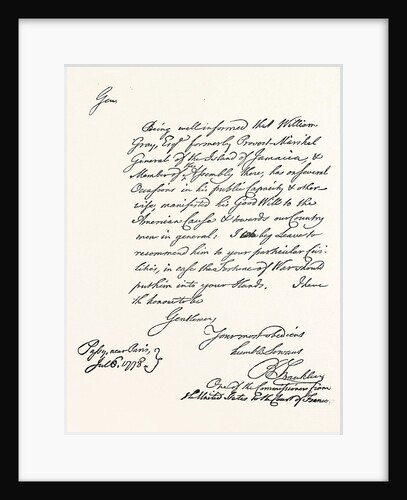 Gen
Being well informed that William
Gray, Esqr formerly Provost-Marshal
General of the Island of Jamaica, &
Member of the Assembly there, has on several
Occasions in his public Capacity & other
wise, manifested his Good Will to the
American Cause & towards our Country
men in general; I beg Leave to
recommend him to your particular Civi-
lities, in case the Fortune of War should
put him into your Hands. I have
the honour to be
Gentlemen,
Your most obedient
humble Servant
B Franklin
One of the Commissioners from
the United States to the Court of France
Passy, near Paris,
Jul 6. 1778